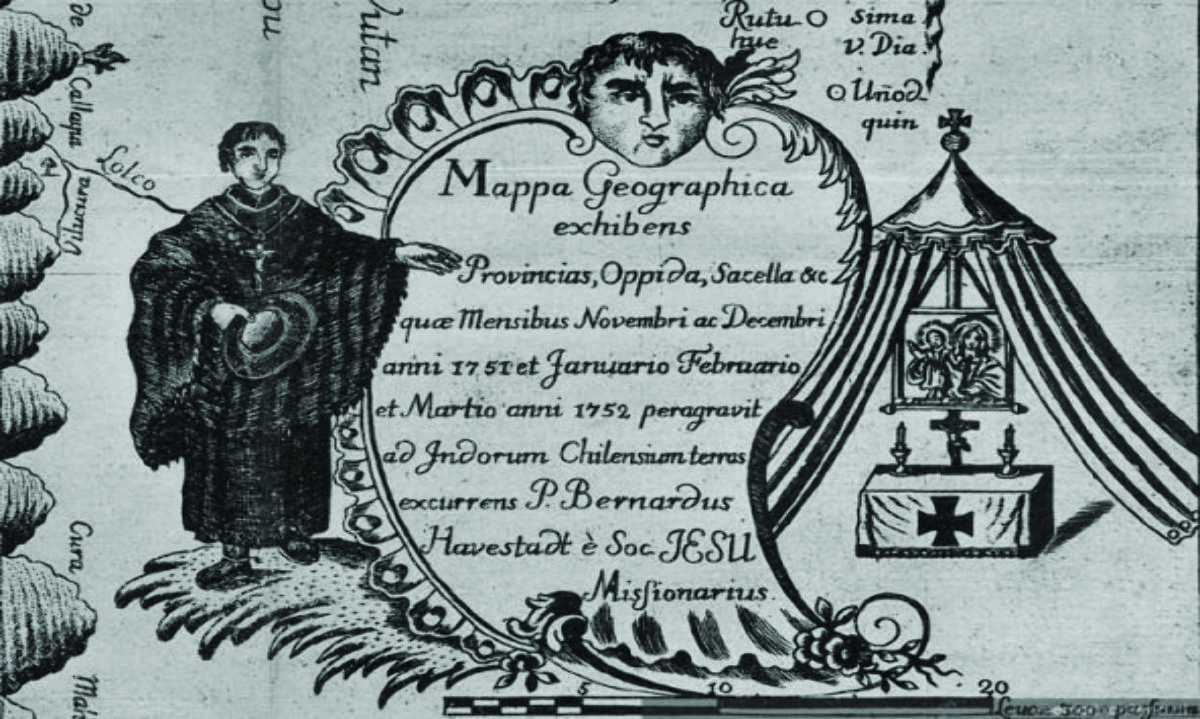 de
Callaqui
Lolco
Vutan
Rutu
hue
sima
v. Dia.
Uñod
quin
Mappa Geographica
exhibens
Provincias, Oppida, Sacella &c
quæ Mensibus Novembri ac Decembri
anni 1751 et Januario Februario
et Martio anni 1752 peragravit
ad Indorum Chilensium terras
excurrens P. Bernardus
Havestadt è Soc. JESU
Missionarius.
Cura
Mal
5 10 20
Leucæ 3000 passuum